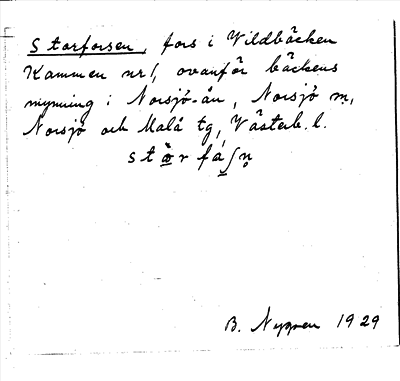 Storforsen, fors i Vildbäcken
Kammen nr 1, ovanför bäckens
mynning i Norsjö-ån, Norsjö sn,
Norsjö och Malå tg, Västerb. l.
stœ̄r fá ʃn̥
B. Nygren 1929